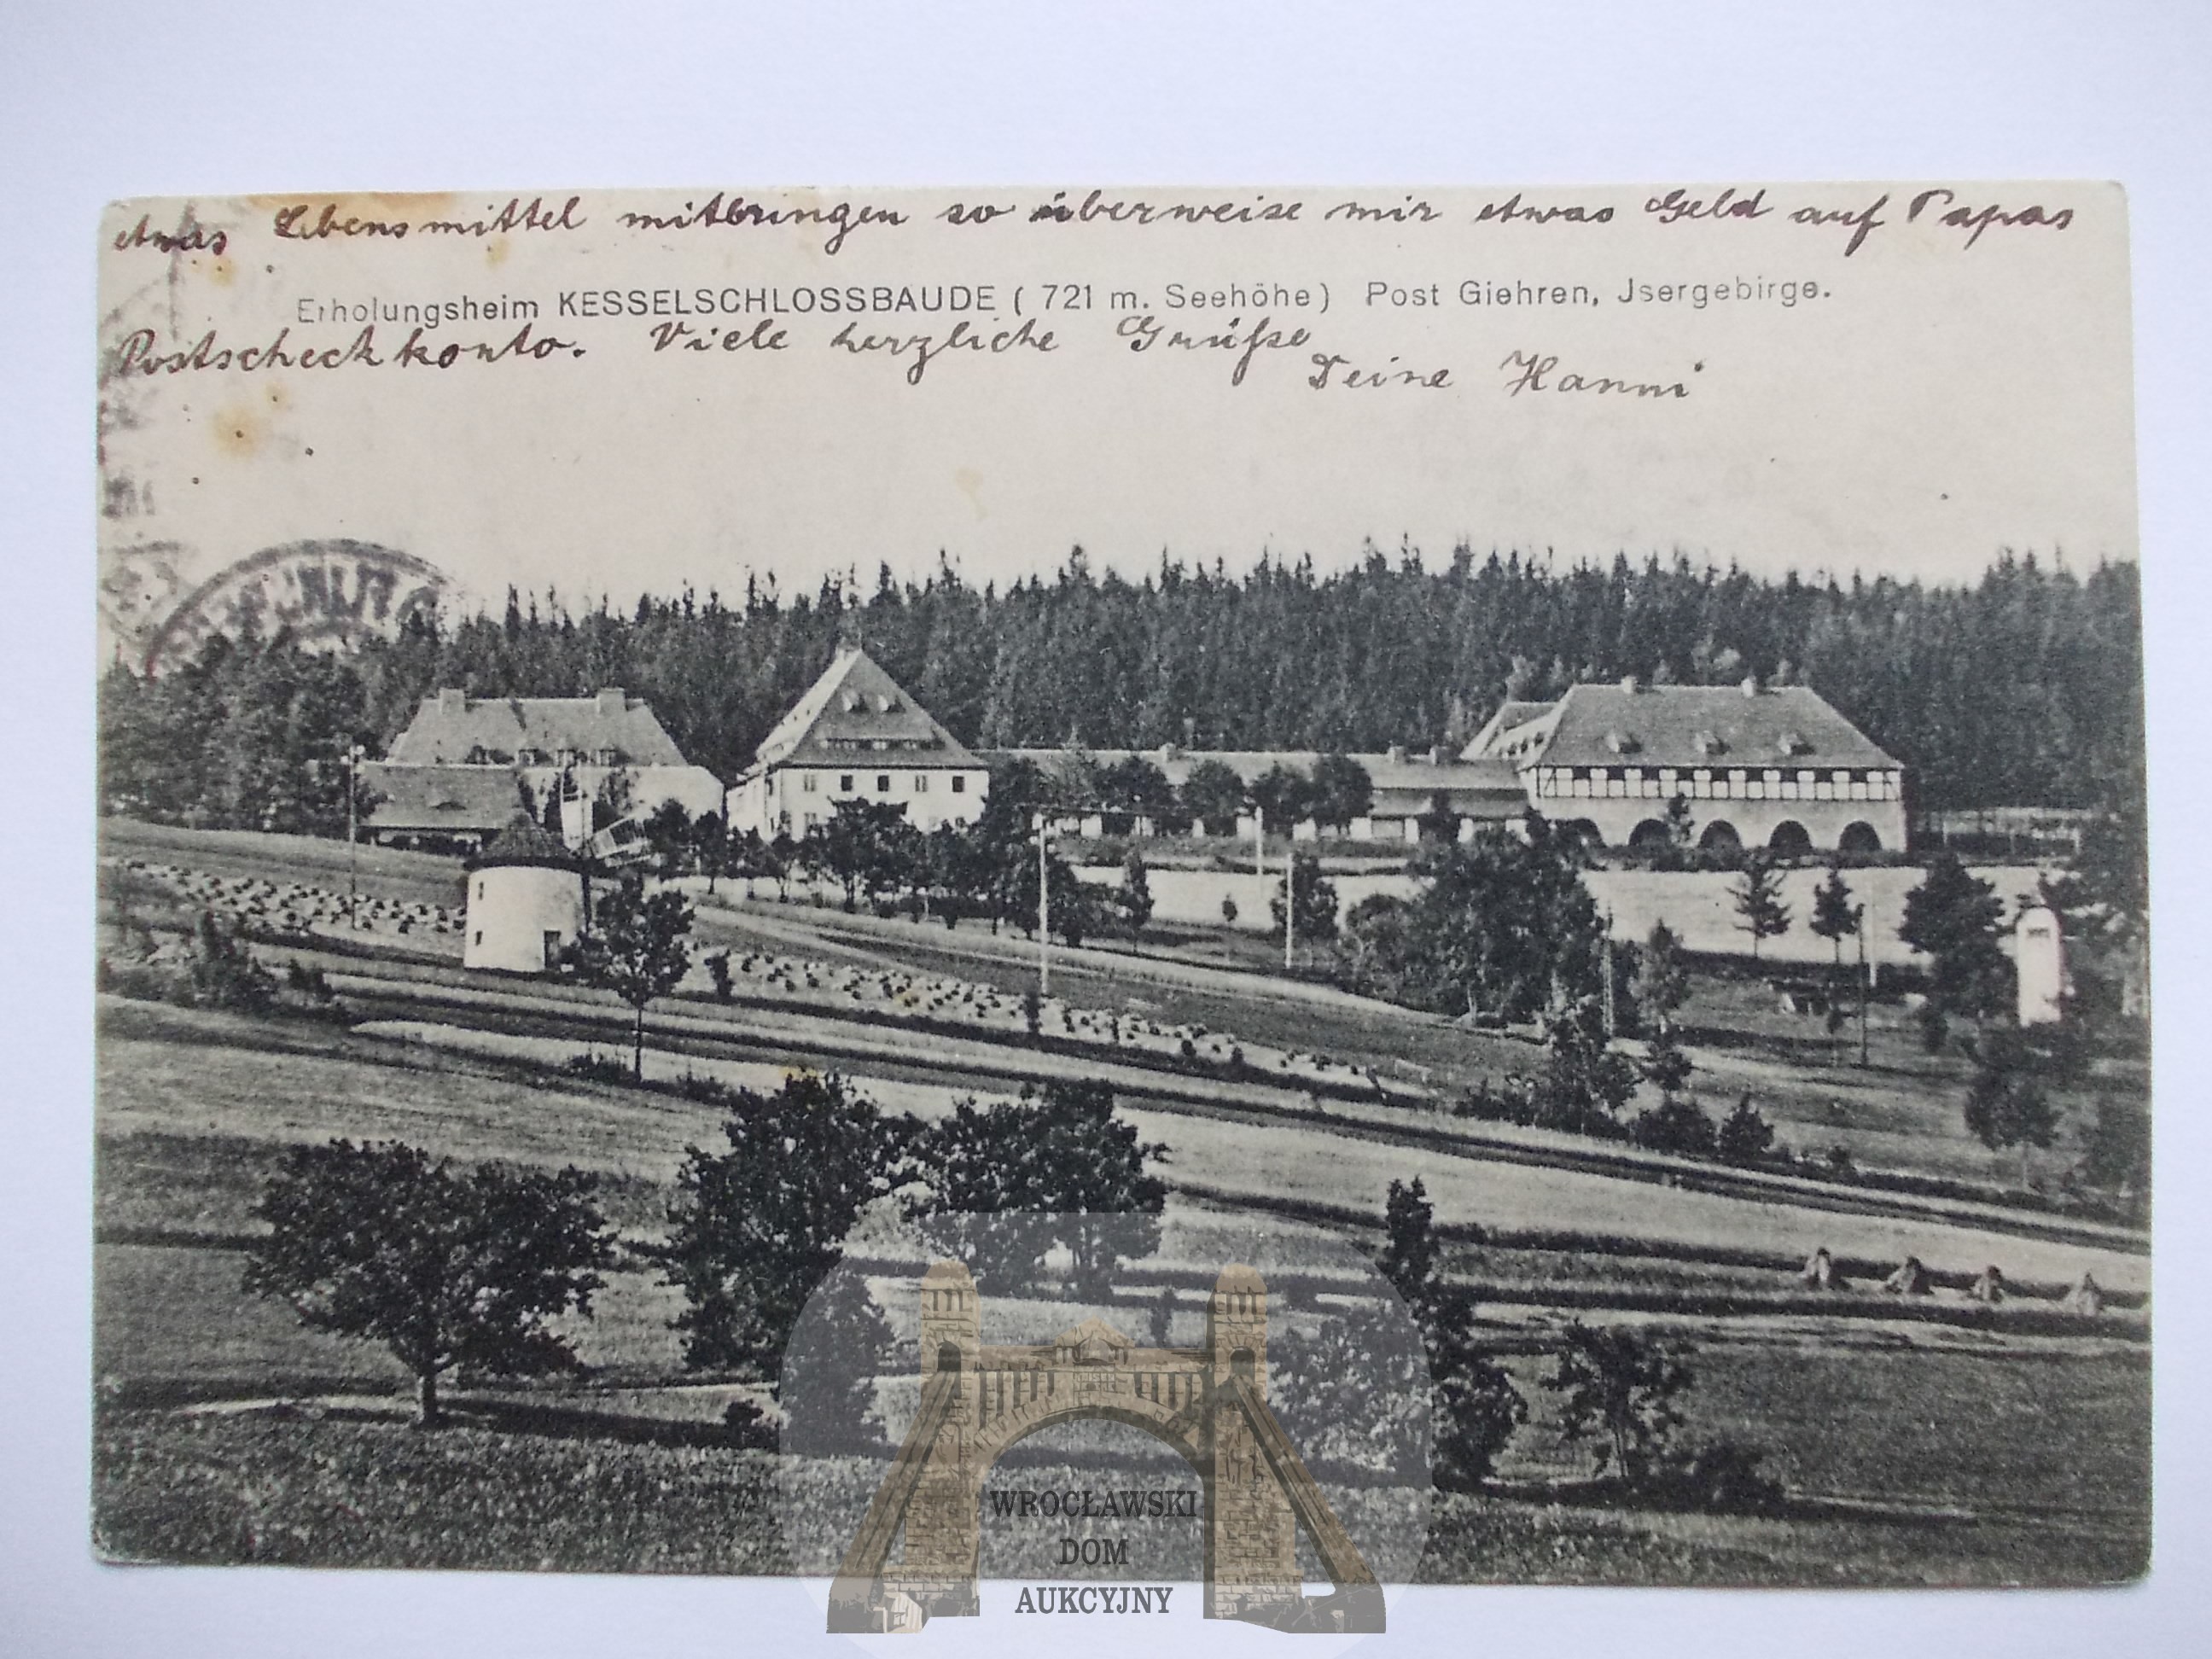 etwas Lebensmittel mitbringen so überweise mir etwas Geld auf Papas
Erholungsheim KESSELSCHLOSSBAUDE ( 721 m. Seehöhe) Post Giehren, Jsergebirge.
Postscheckkonto. Viele herzliche Grüße
Deine Hanni
WROCŁAWSKI
DOM
AUKCYJNY